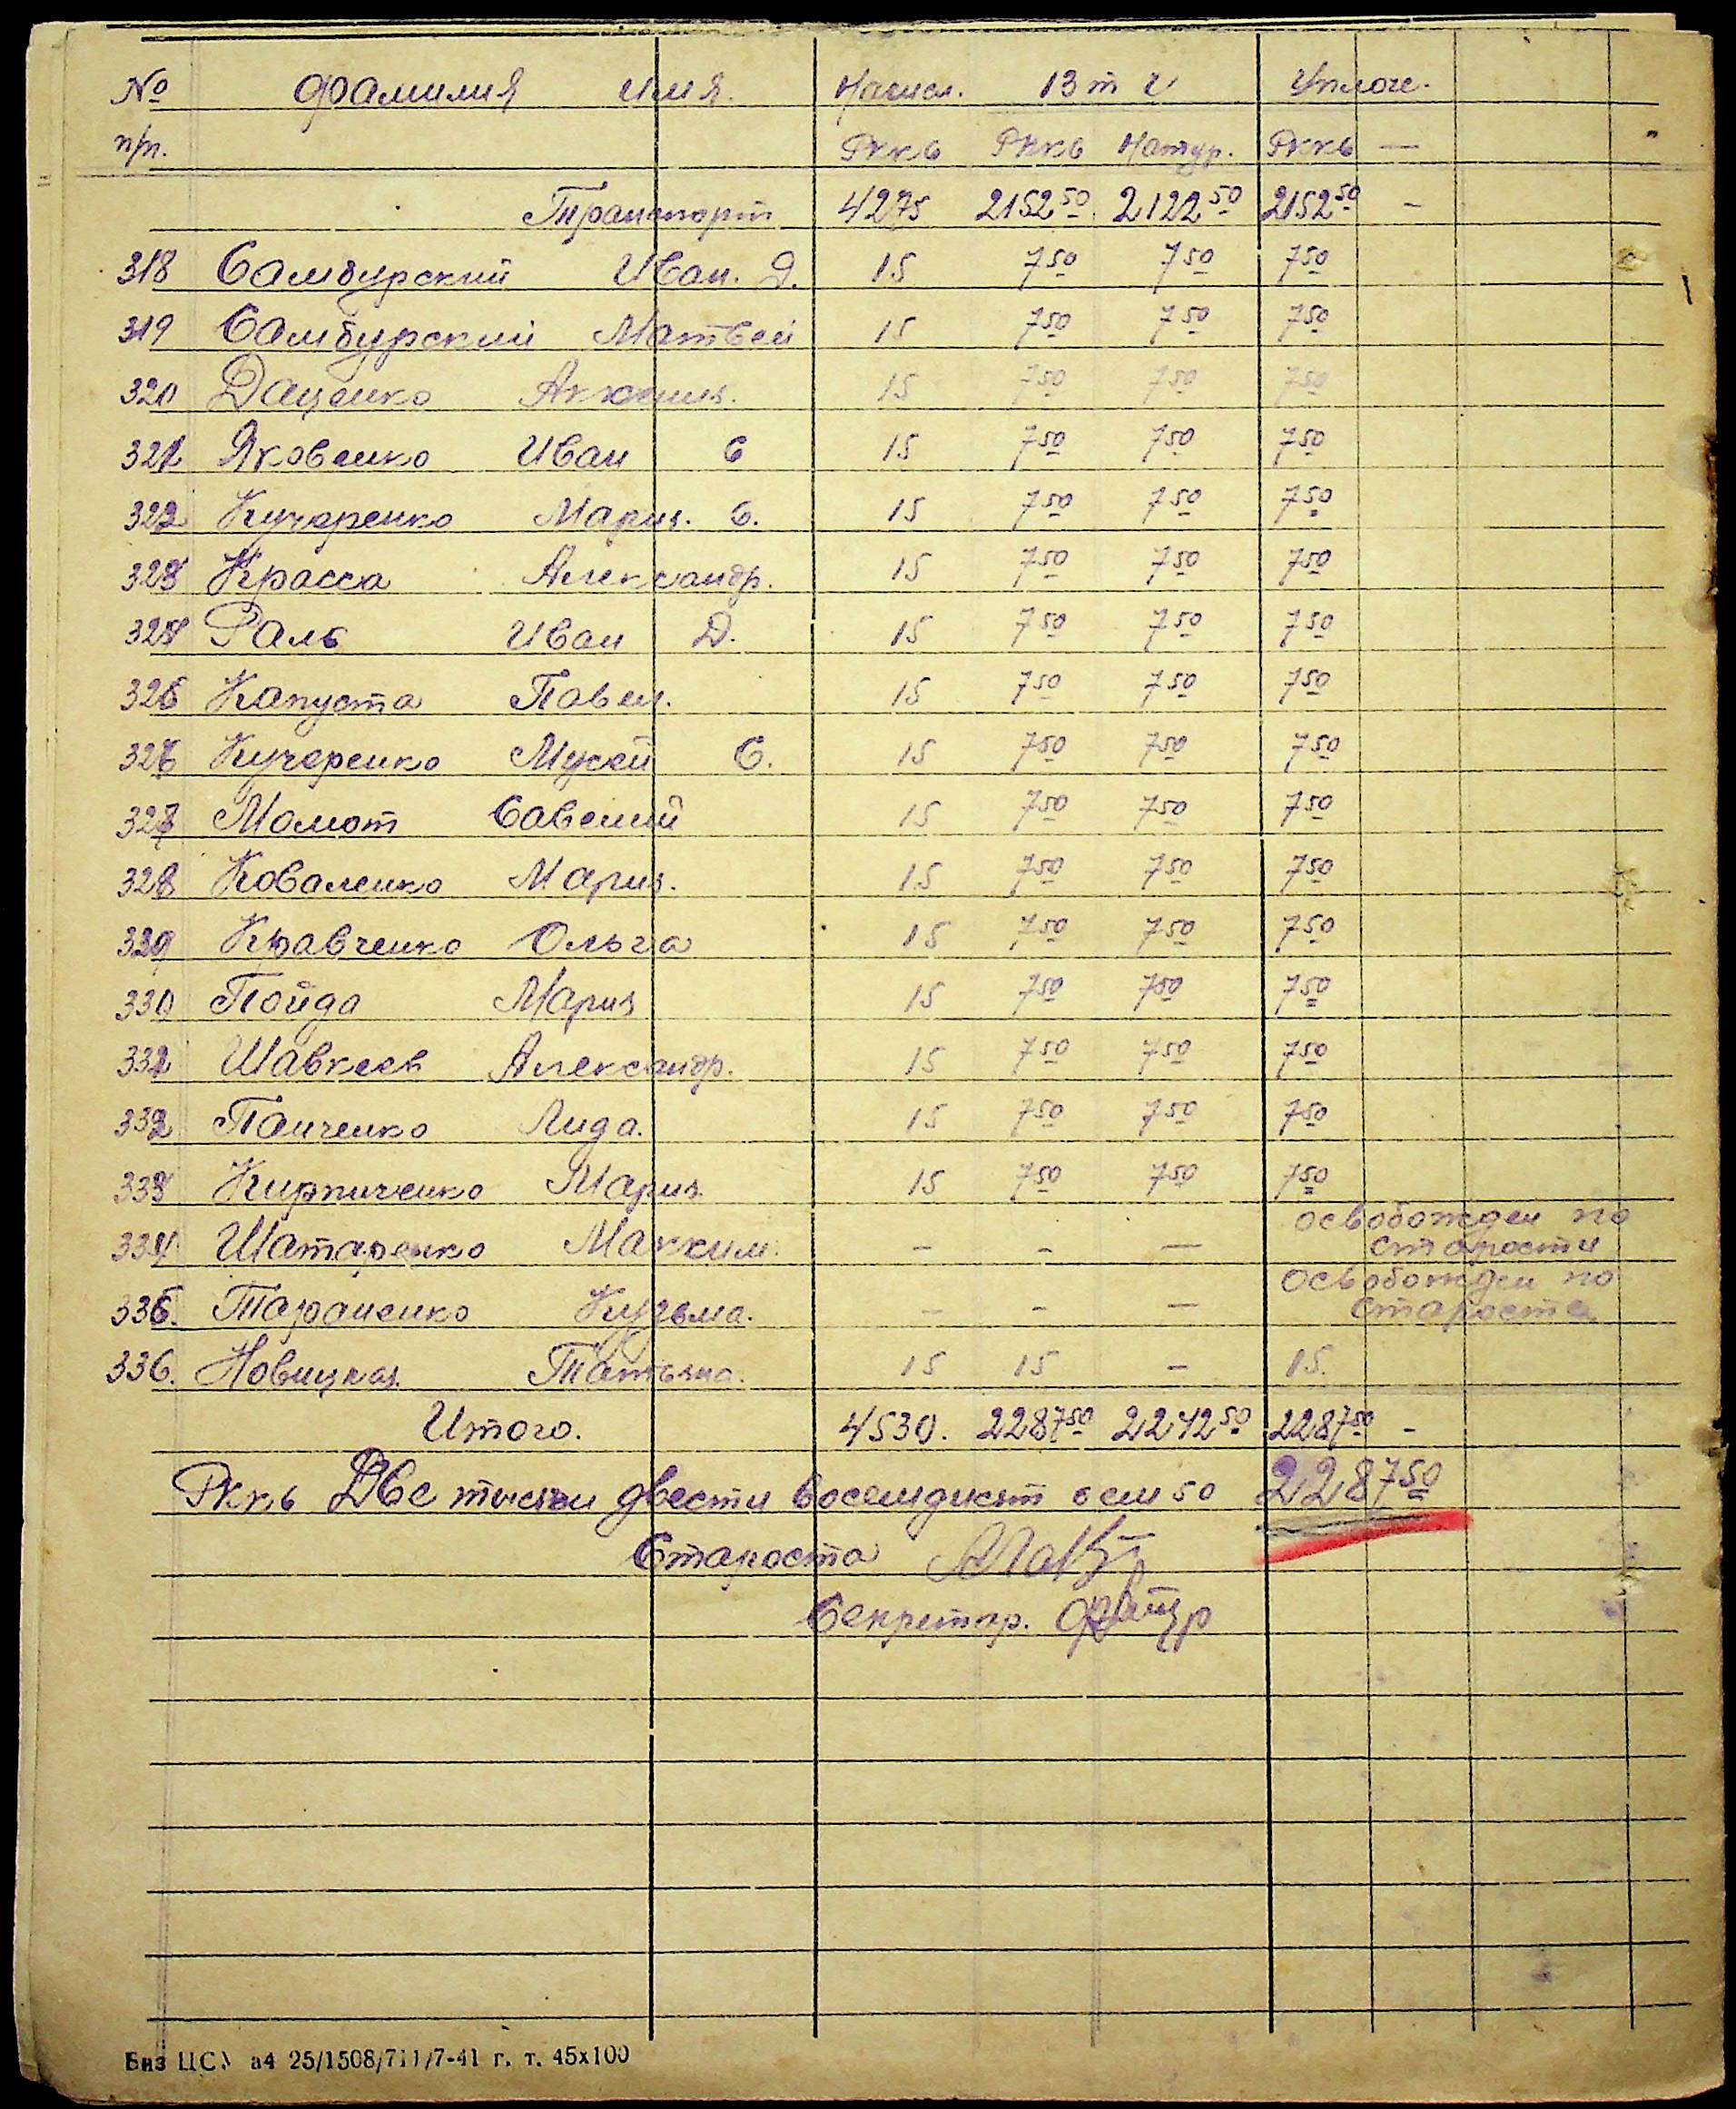 № фамилия имя. Начисл. В т ч Уплоче.
п/п. Рккь Рккь Натур. Рккь —
Транспорт 4275 2152 50 2122 50 2152 50 -
318 Самбурский Иван. Д. 15 7 50 7 50 7 50
319 Самбурский Матвей 15 7 50 7 50 7 50
320 Даценко 15 7 50 7 50 7 50
321 Яковенко Иван С 15 7 50 7 50 7 50
322 Кучеренко Мария. С. 15 7 50 7 50 7 50
323 Красса Александр. 15 7 50 7 50 7 50
324 Раль Иван Д. 15 7 50 7 50 7 50
325 Капуста Павел. 15 7 50 7 50 7 50
326 Кучеренко Мусей С. 15 7 50 7 50 7 50
327 Момот Савелий 15 7 50 7 50 7 50
328 Коваленко Мария. 15 7 50 7 50 7 50
329 Кравченко Ольга 15 7 50 7 50 7 50
330 Пойда Мария 15 7 50 7 50 7 50
331 Шавкеев Александр. 15 7 50 7 50 7 50
332 Панченко Лида. 15 7 50 7 50 7 50
333 Кирпиченко Мария. 15 7 50 7 50 7 50
334 Шатаренко Макким. - - — освобожден по старости
335. Тараненко Кузьма. - - — освобожден по старости
336. Новицкая Татьяна. 15 15 - 15.
Итого. 4530. 2287 50 2242 50 2287 50 -
Рккь Две тысячи двести восемдисят сем 50 2287 50
Староста
Секретар.
Биз ЦСУ а4 25/1508/711/7-41 г. т. 45х100